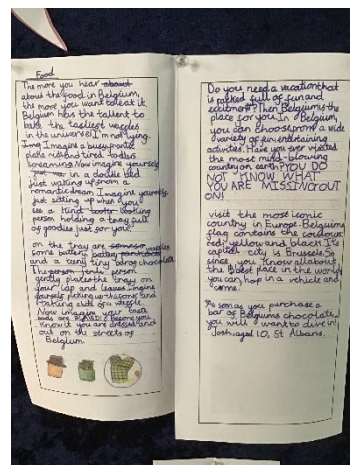 Food
The more you hear about
about the food in Belgium,
the more you want to eat it.
Belgium has the tallent to
bake the tastiest waffles
in the universe I'm not lying.
Imagine a busy, manic
plane ride and tired toddlers
screaming. Now imagine yourself
just in a doodle bed
just waking up from a
romantic dream. Imagine yourself
just sitting up when you
see a kind looking
person holding a tray full
of goodies just for you.
on the tray are
some battery waffles
and a teeny tiny chocolate
The person
gently places the tray on
your lap and leaves. Imagine
yourself picking up the cone and
taking a waffle.
Now imagine your taste
buds are Before you
know it you are dressed and
out on the streets of
Belgium
Do you need a vacation that
is packed full of fun and
excitment? Then Belgium is the
place for you. In Belgium,
you can choose from a wide
variety of fun entertaining
activities. Have you ever visited
the most mind-blowing
country on earth? YOU DO
NOT KNOW WHAT
YOU ARE MISSING OUT
ON!
visit the most iconic
country in Europe. Belgiums
flag contains the colours
red, yellow and black. It's
capital city is Brussels. So
since you know all about
the best place in the world,
you can hop in a vehicle and
come.
As soon as you purchase a
bar of Belgiums chocolate,
you will want to dive in!
Josh, aged 10, St Albans.